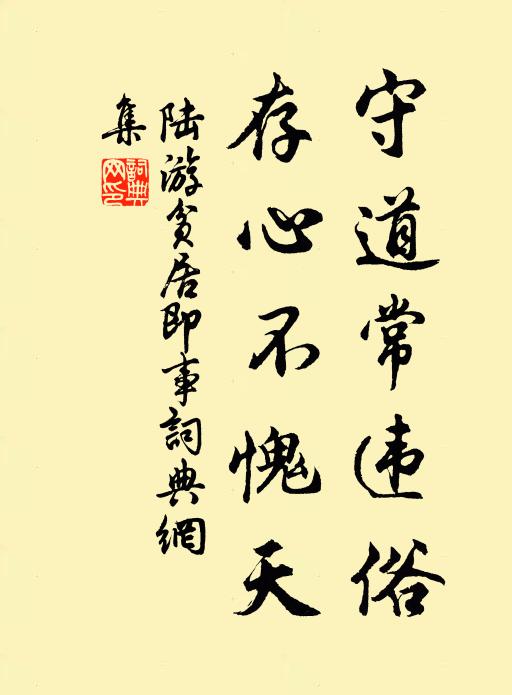 守道常违俗
存心不愧天
陆游贫居即事詞典網
集
詞典網印